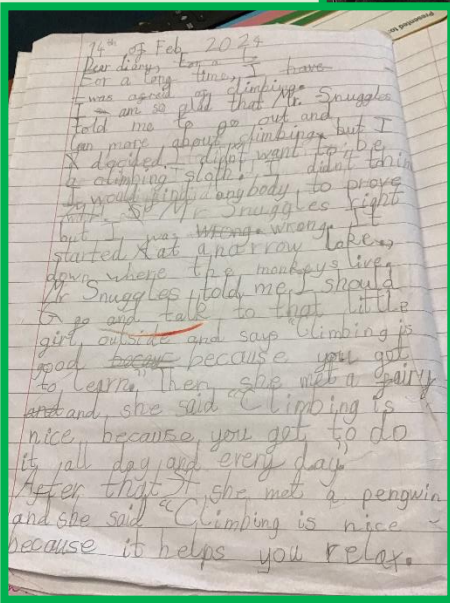 Presented to:
14th of Feb 2024
Dear diary, for a
For a long time, I have
I was agred of climbing.
I am so glad that Mr. Snuggles
told me to go out and
lan more about climbing, but I
X decided I didn't want to be
a climbing sloth. I didn't thin
I would find anybody, to prove
Mr Snuggles right
but I was wrong. wrong. It
started at a narrow lake,
down where the monkeys live.
Mr Snuggles, told me I should
go and talk to that little
girl, outside and says "Climbing is
good becaus because you get
to learn," Then, she met a fairy
and and, she said "Climbing is
nice, because, you got to do
it, all day and every day"
After that It, she met a pengwin
and she said "Climbing is nice
because it helps you relax.